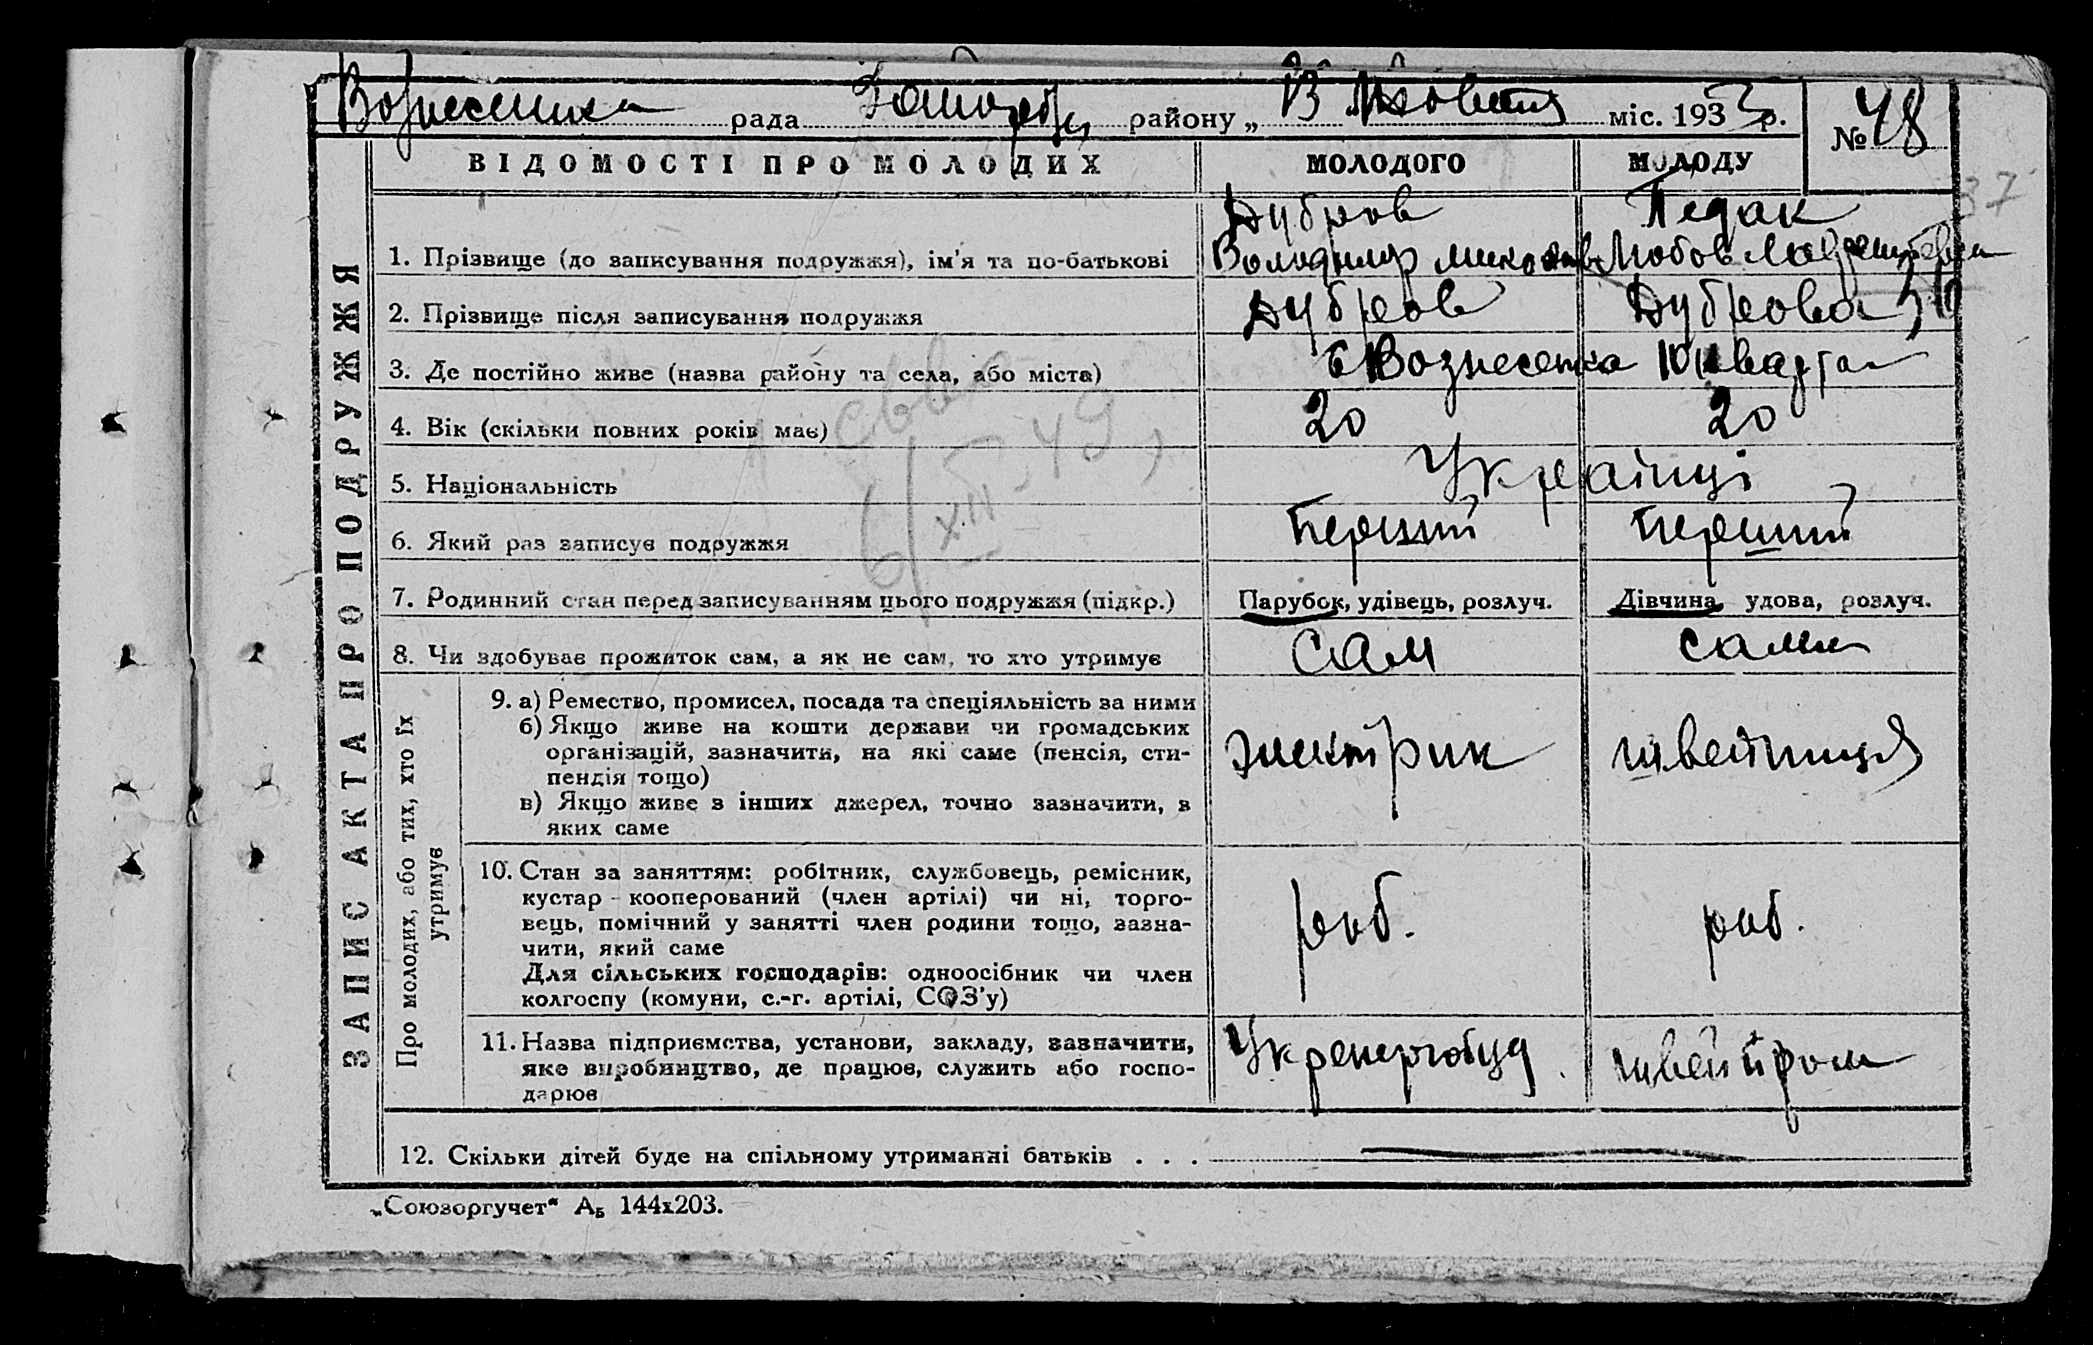 Вознесенка рада району „ 13 Жовтня міс. 1933 р. № 48
ВІДОМОСТІ ПРО МОЛОДИХ МОЛОДОГО МОЛОДУ
37
ЗАПИС АКТА ПРО ПОДРУЖЖЯ
Дубров Педак
1. Прізвище (до записування подружжя), ім'я та по-батькові Володимир Любов
2. Прізвище після записування подружжя Дубров Дуброва
3. Де постійно живе (назва району та села, або міста) Вознесенка 10 квартал
4. Вік (скільки повних років має) 20 20
5. Національність Українці
6/XII-49
6. Який раз записує подружжя Перший Перший
7. Родинний стан перед записуванням цього подружжя (підкр.) Парубок, удівець, розлуч. Дівчина, удова, розлуч.
8. Чи здобуває прожиток сам, а як не сам, то хто утримує сам сама
Про молодих, або тих, хто їх
утримує
9. а) Ремество, промисел, посада та спеціяльність за ними
б) Якщо живе на кошти держави чи громадських
організацій, зазначити, на які саме (пенсія, сти-
пендія тощо) электрик швейниця
в) Якщо живе з інших джерел, точно зазначити, в
яких саме
10. Стан за заняттям: робітник, службовець, ремісник,
кустар - кооперований (член артілі) чи ні, торго-
вець, помічний у занятті член родини тощо, зазна- роб. роб.
чити, який саме
Для сільських господарів: одноосібник чи член
колгоспу (комуни, с.-г. артілі, СОЗ'у)
11. Назва підприємства, установи, закладу, зазначити,
яке виробництво, де працює, служить або госпо- Укренергобуд швейпром
дарює
12. Скільки дітей буде на спільному утриманні батьків . . .
„Союзоргучет" АБ 144х203.